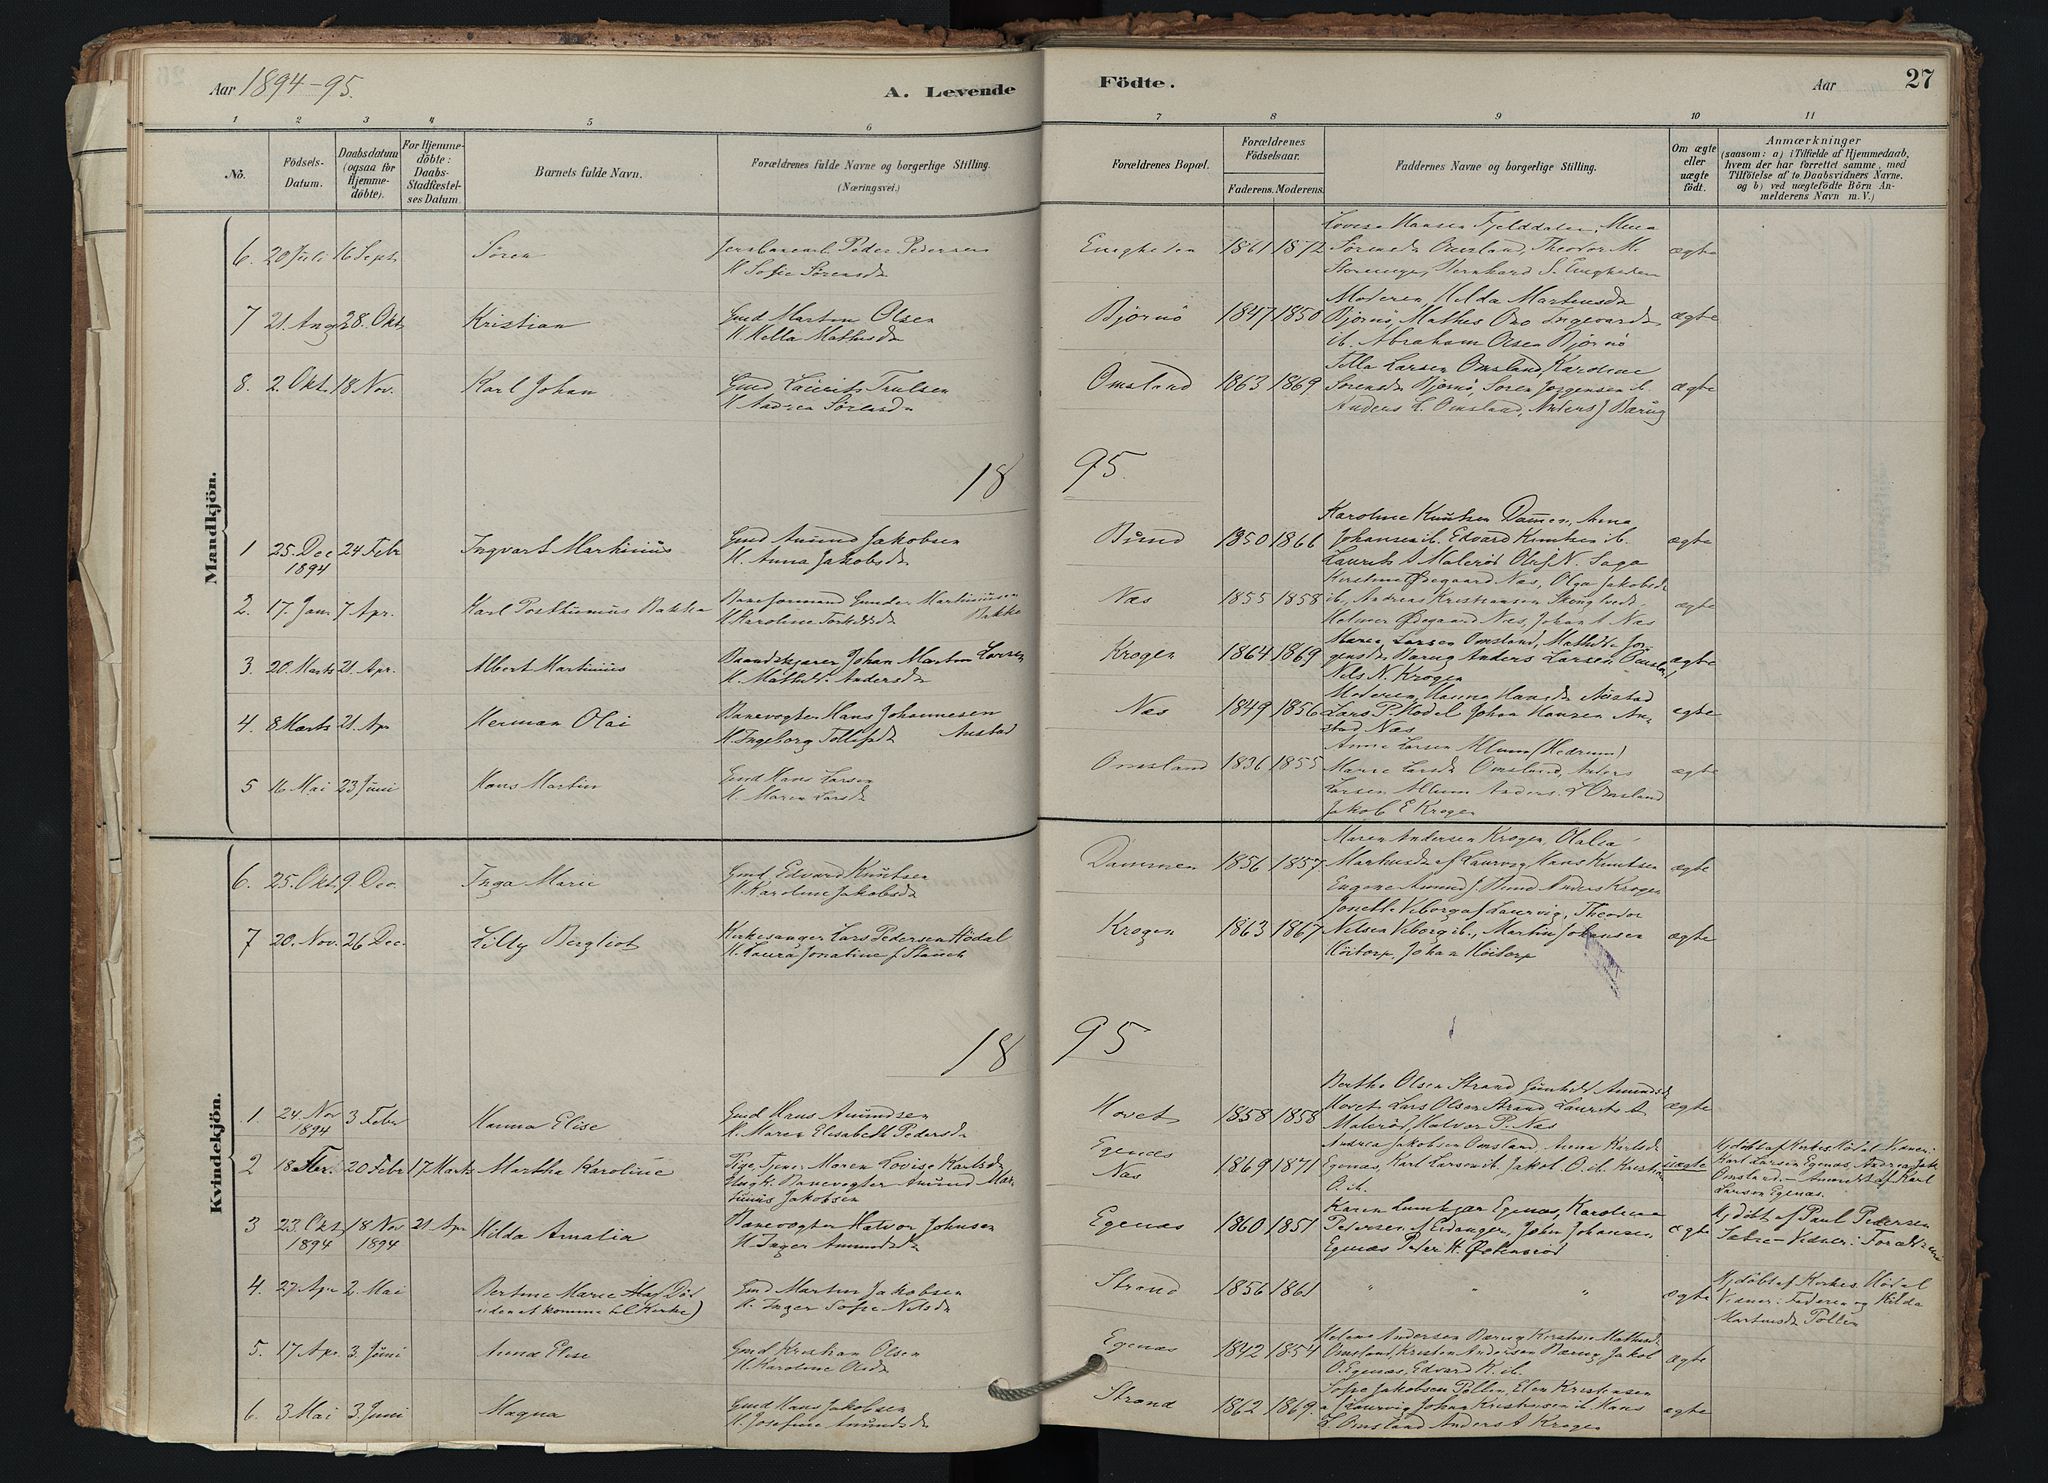 Aar 1894-95.
A. Levende
Födte.
Aar
27
1 2 3 4 5 6 7 8 9 10 11
No.
Födsels-Datum.
Daabsdatum (ogsaa for Hjemme-döbte).
For Hjemme-döbte: Daabs-Stadfæstel-ses Datum.
Barnets fulde Navn.
Forældrenes fulde Navne og borgerlige Stilling.
(Næringsvei.)
Forældrenes Bopæl.
Forældrenes Födselsaar.
Faderens. Moderens.
Faddernes Navne og borgerlige Stilling.
Om ægte eller uægte födt.
Anmærkninger
(saasom: a) i Tilfælde af Hjemmedaab,
hvem der har forrettet samme, med
Tilföielse af to Daabsvidners Navne.
og b) ved uægtefödte Börn An-
melderens Navn m. V.)
Mandkjön.
6. 20 Juli 16 Sept. Søren
Peder Pedersen
H. Sofie Sørensdr
Enigheden 1861 1872
Lovise Hansen Fjelddalen,
Sørensdr Omsland, Theodor M.
Bernhard S. Enigheden
ægte
7 21. Aug 28. Okt Kristian
Gmd Martin Olsen
H. Hella Mathisdr
Bjørnø 1847 1850
Moderen, Hilda Martinsdr
Bjørnø, Mathis
ib. Abraham Olsen Bjørnø
ægte
8. 2. Okt. 18 Nov. Karl Johan
Gmd Laurits Trulsen
H. Andrea Sørensdr
Omsland 1863 1869
Larsen Omsland, Karoline
Sørensdr Bjørnø, Søren Jørgensen ib.
Anders L. Omsland, Anders J Barug
ægte
18 95.
1 25. Dec 1894 24 Febr Ingvart Martinius
Gmd Amund Jakobsen
H. Anna Jakobsdr
1850 1866
Karoline Knutsen Dammen, Anna
Johansen ib. Edvard Knutsen ib.
Laurits A Malerød Olaf N. Saga
ægte
2. 17. Jan. 7 Apr. Karl Posthumus Bakka
Baneformand Gunder Martiniusen
H. Karoline Torkildsdr Bakke
Næs 1855 1858
Kirstine Ødegaard Næs, Olga Jakobsdr
ib, Andreas Kristiansen
Helmer Ødegaard Næs, Johan A Næs
ægte
3 20. Marts 21. Apr. Albert Martinius
Johan Martin Larsen
H. Mathilde Andersdr
Krogen 1864 1869
Maren Larsen Omsland, Mathilde Jør-
gensdr Barug Anders Larsen Omsland,
Nils N. Krogen
ægte
4 8 Marts 21. Apr Herman Olai
Banevogter Hans Johannesen
H. Ingeborg Tollefsdr Austad
Næs 1849 1856
Moderen, Hanna Hansdr Austad
Lars P. Johan Hansen Au-
stad Næs
ægte
5 16 Mai 23 Juni Hans Martin
Gmd Hans Larsen
H. Maren Larsdr
Omsland 1836 1855
Anne Larsen Allum (Hedrum)
Marie Larsdr Omsland, Anders
Larsen Allum Anders L Omsland
Jakob E Krogen
ægte
Kvindekjön.
6. 25. Okt. 9 Dec. Inga Marie
Gmd. Edvard Knutsen
H. Karoline Jakobsdr
Dammen 1856 1857
Maren Andersen Krogen, Olalia
Markusdr af Laurvig Hans Knutsen
Amund J. Anders Krogen
ægte
7 20. Nov. 26 Dec. Lilly Bergliot
Kirkesanger Lars Pedersen Hødal
H. Laura Jonatine f.
Krogen 1863 1867
Viborg af Laurvig, Theodor
Nilsen Viborg ib., Martin Johansen
Johan
ægte
18 95
1. 24 Nov 1894 3 Febr Hanna Elise
Gmd Hans Amundsen
H. Maren Elisabeth Pedersdr
Hovet 1858 1858
Berthe Olsen Strand Gunhild Amundsdr
Hovet Lars Olsen Strand Laurits A.
Malerød, Halvor P. Næs
ægte
2 18 Febr. 20 Febr 17 Marts Martha Karoline
Pige, Tjen. Maren Lovise Karlsdr
Ungk. Banevogter Amund Mar-
tinius Jakobsen
Egenæs
Næs
1869 1871
Andrea Jakobsen Omsland, Anna Karlsdr
Egenæs, Karl Larsen ib. Jakob O. ib. Kristian
O. ib.
uægte
Hjdöbt af Kirkes. Hödal Vidner:
Karl Larsen Egenæs, Andrea Jak.
Omsland. - Anmeldt af Karl
Larsen Egenæs.
3 23. Okt. 1894 18 Nov 1894 21 Apr Hilda Amalia
Banevogter Halvor Johnsen
H. Inger Amundsdr
Egenæs 1860 1851
Karen Egenæs, Karoline
Pedersen af Eidanger, John Johansen
Egenæs Peder H.
ægte
Hjdöbt af Paul Pedersen
Vidner: Forældrene
4. 27 Apr 2. Mai Bertine Marie (Død
uden at komme til Kirke)
Gmd Martin Jakobsen
H. Inger Sofie Nilsdr
Strand 1856 1861
" " "
ægte
Hjdöbt af Kirkes. Hödal
Vidner: Faderen og Hilda
Martinsdr
5. 17 Apr. 3. Juni Anna Elise
Gmd Kristian Olsen
H. Karoline Olsdr
Egenæs 1842 1854
Helene Andersen Barug Kirstine Mathisdr
Omsland, Kristen Andersen Barug Jakob
O. Egenæs, Edvard K. ib.
ægte
6. 3 Mai 3. Juni Magna
Gmd Hans Jakobsen
H. Josefine Amundsdr
Strand 1862 1869.
Sofie Jakobsen Elen Kristensen
af Laurvig Johan Kristensen ib. Hans
L. Omsland Anders A Krogen
ægte